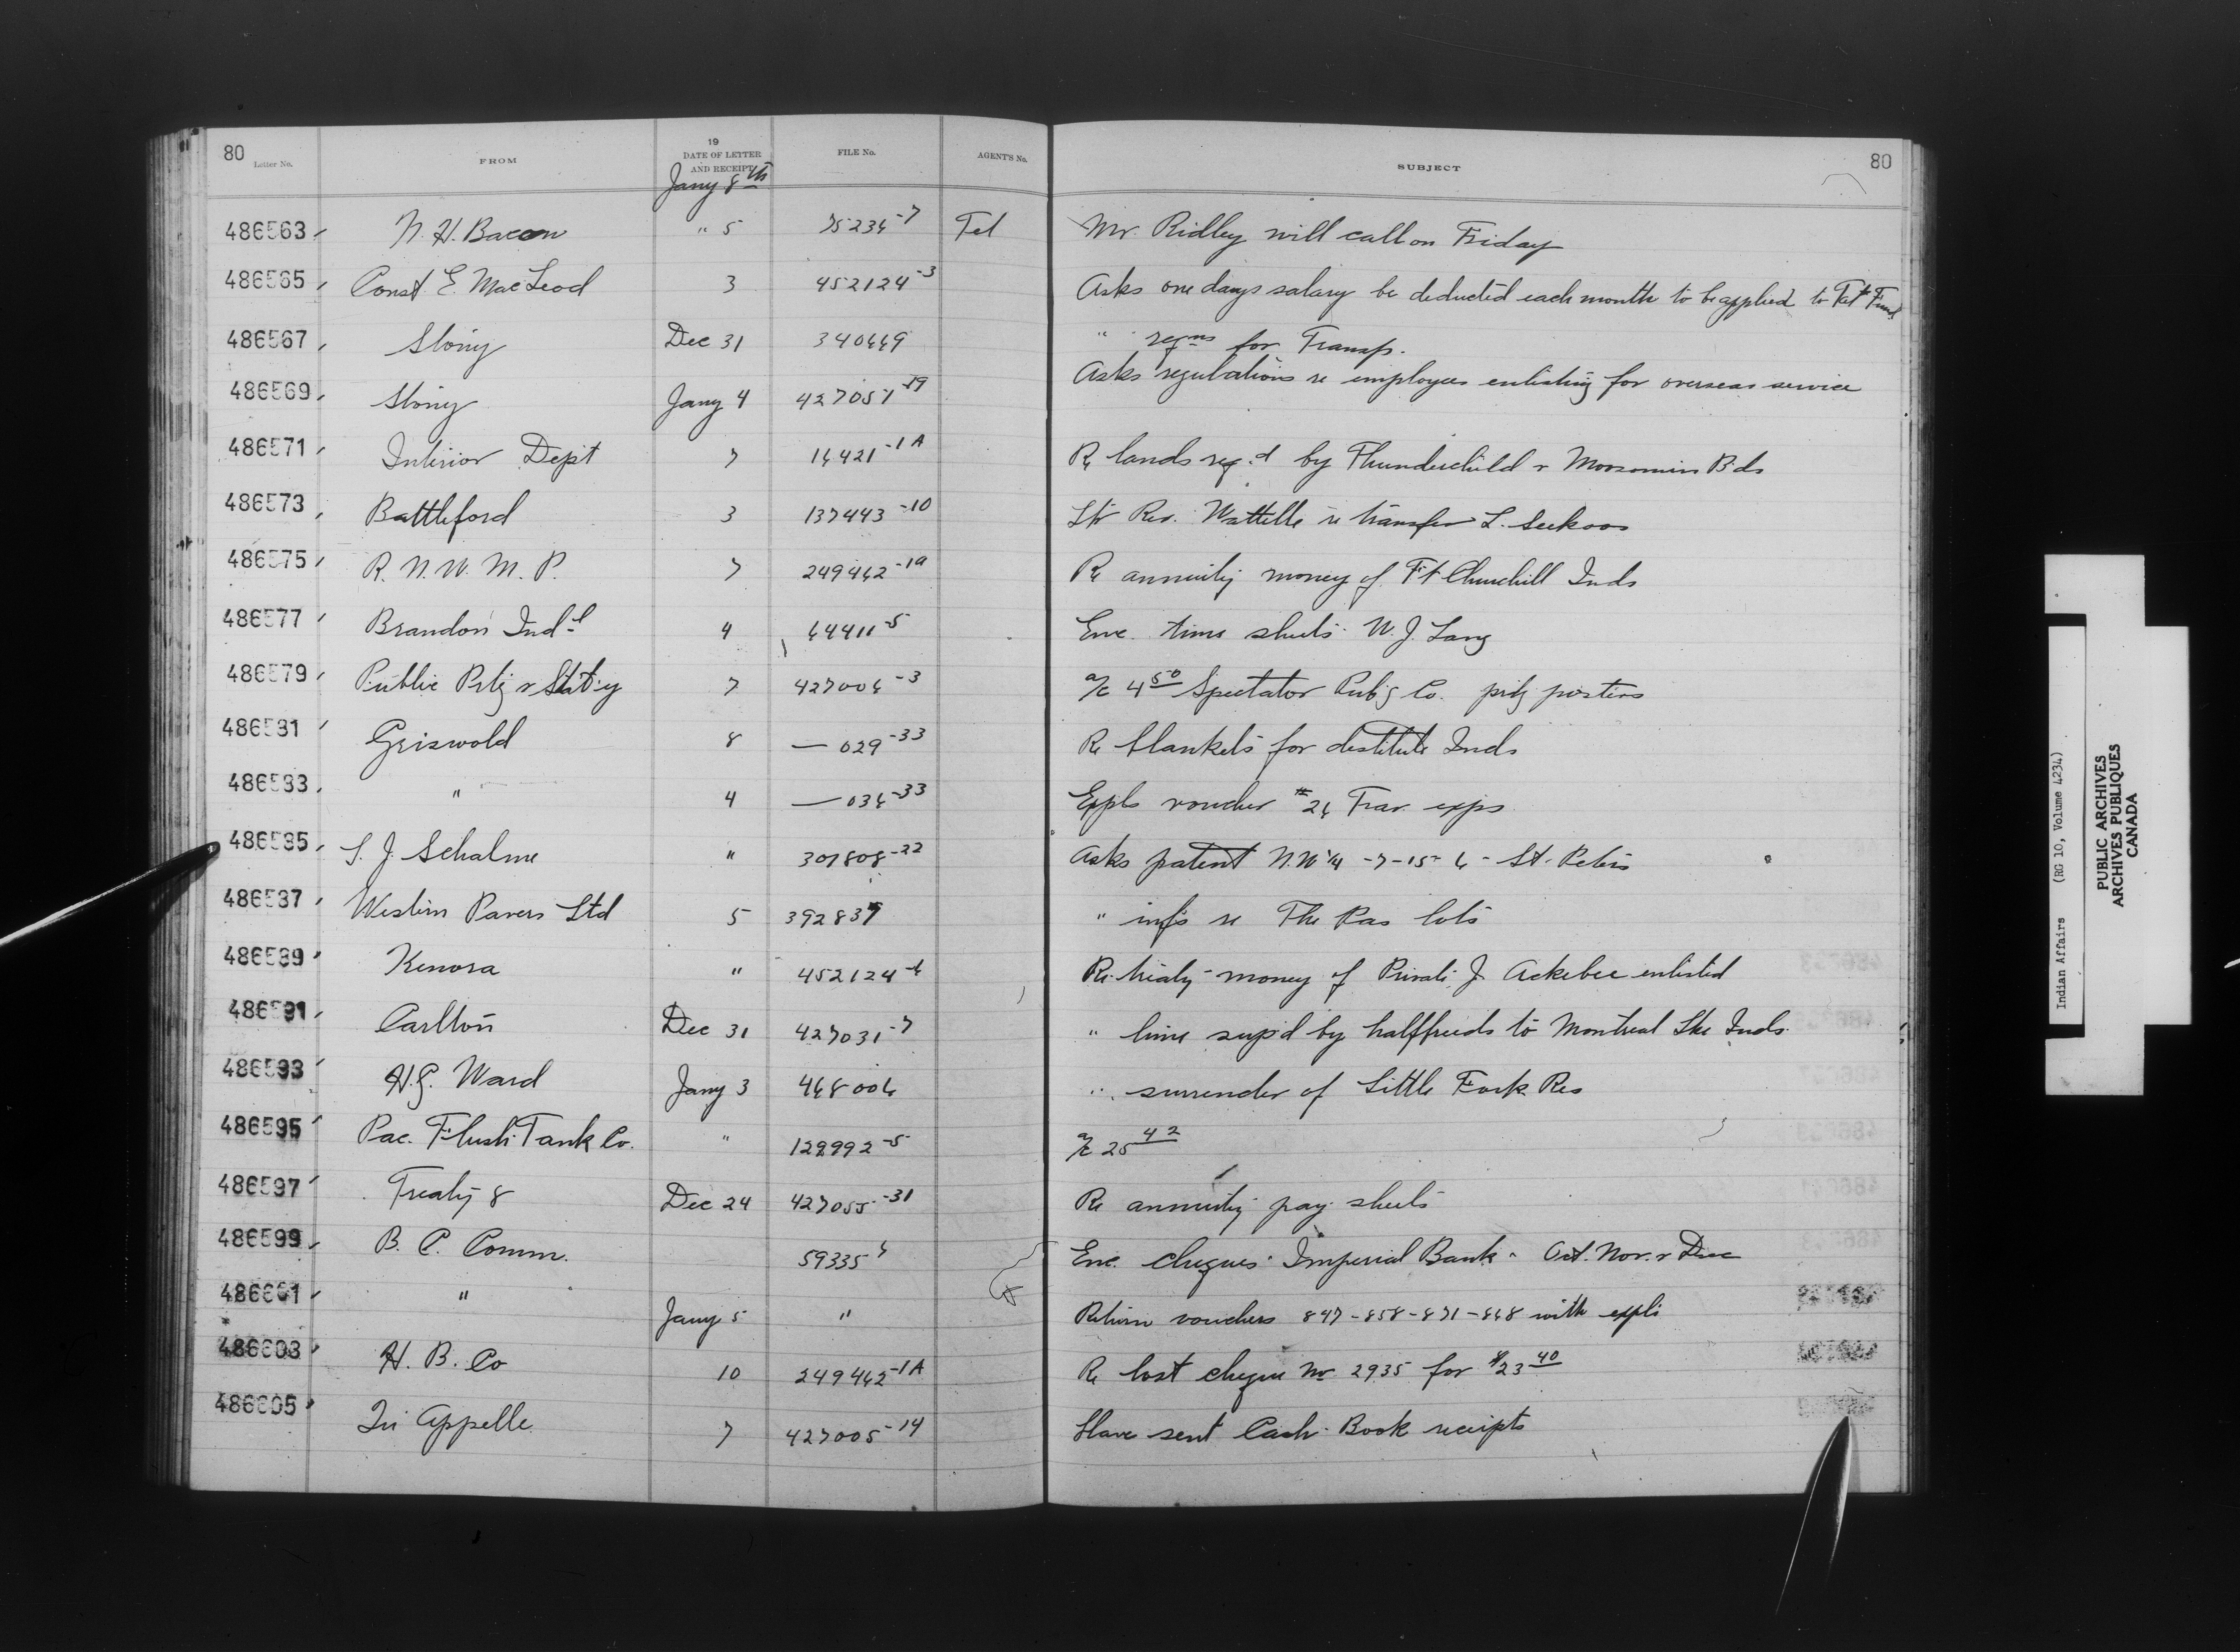 80 80
Letter No. FROM 19 DATE OF LETTER AND RECEIPT FILE No. AGENT'S No. SUBJECT
Jany 8th
486563 N. H. Bacon " 5 75234-7 Tel Mr. Ridley will call on Friday
486565 Const. E. MacLeod 3 452124-3 Asks one days salary be deducted each month to be applied to Pat Fund
486567 Stony Dec 31 340649 " reqns for Transp.
486569 Stony Jany 4 427051-19 Asks regulations re employees enlisting for overseas service
486571 Interior Dept 7 16421-1A Re lands reqd by Thunderchild & Moosomin Bds
486573 Battleford 3 137443-10 Ltr Rev. Wattelle re transfer L. Seekoos
486575 R. N. W. M. P. 7 249462-1A Re annuity money of Ft Churchill Inds
486577 Brandon Indl 4 64411-5 Enc. time sheets W. J. Lang
486579 Public Prtg & Stat'y 7 427006-3 a/c 4 50 Spectator Pub'g Co. prtg posters
486581 Griswold 8 — 029-33 Re blankets for destitute Inds
486583 " 4 — 036-33 Expls voucher #26 Trav. exps
486585 S. J. Schalme " 307808-22 Asks patent N.W 1/4 -7-15-6- St. Peters
486587 Western Pavers Ltd 5 392837 " info re The Pas lots
486589 Kenora " 452124-6 Re treaty money of Private J. Ackebee enlisted
486591 Carlton Dec 31 427031-7 " lime sup'd by halfbreeds to Montreal Lke Inds.
486593 H.G. Ward Jany 3 468006 " surrender of Little Fork Res
486595 Pac. Flush Tank Co. " 129992-5 a/c 25 42
486597 Treaty 8 Dec 24 427055-31 Re annuity pay sheets
486599 B. C. Comm. 59335 Enc. cheques Imperial Bank - Oct. Nov. & Dec
486601 " Jany 5 " Return vouchers 847-858-871-868 with expls
486603 H. B. Co 10 249462-1A Re lost cheque No 2935 for $23 40
486605 Qu Appelle 7 427005-14 Have sent Cash Book receipts
Indian Affairs (RG 10, Volume 4234)
PUBLIC ARCHIVES
ARCHIVES PUBLIQUES
CANADA